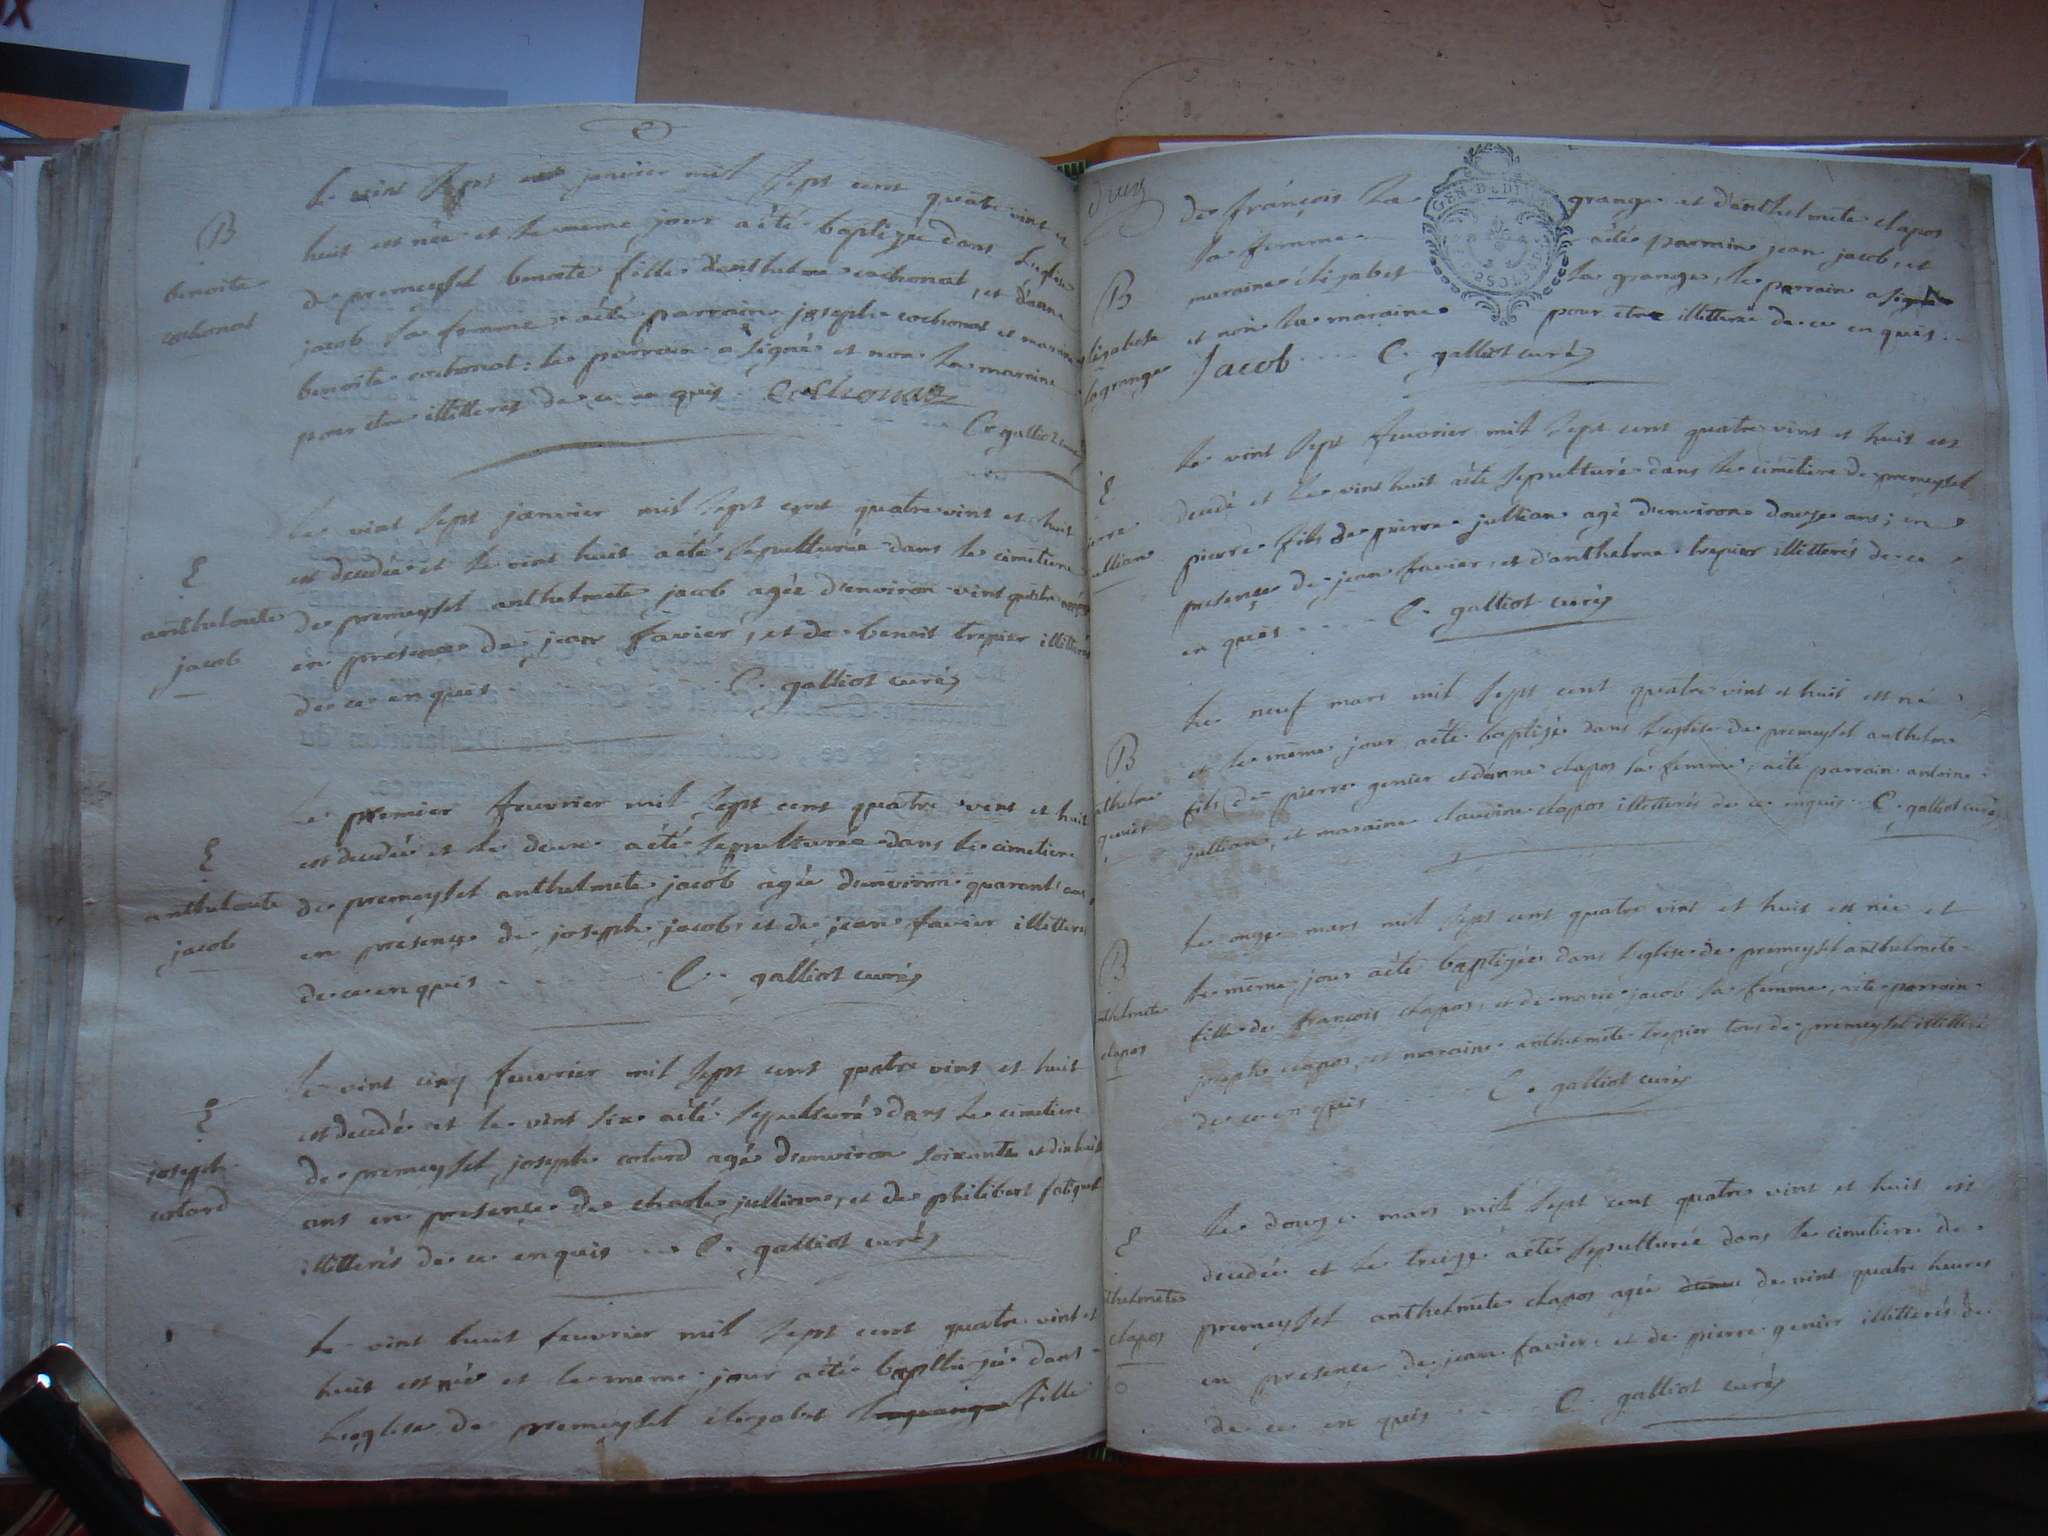 Le vint sept janvier mil sept cent quatre vint et
B
huit est née et le meme jour a été baptizée dans Leglise
benoite
de premeyzel benoite fille d'anthelme cochonat, et d'anne
cochonat
jacob sa femme a été parrain joseph cochonat et maraine
benoite cochonat: le parrain a signé et non la maraine
pour etre illitteres de ce en quis Cochonat
C. galliot curé
Le vint sept janvier mil sept cent quatre vint et huit
est decedée et le vint huit a été sepulturée dans le cimetiere
E
anthelmete
de premeyzel anthelmete jacob agée d'environ vint quatre
jacob
en presence de jean favier, et de benoit trepier illitterés
de ce en quis C. galliot curé
Le premier feuvrier mil sept cent quatre vint et huit
est decedée et le deux a été sepulturée dans le cimetiere
E
anthelmete
de premeyzel anthelmete jacob agée d'environ quarant ans
jacob
en presençe de joseph jacob, et de jean favier illitteres
de ce en quis C. galliot curé
Le vint cinq feuvrier mil sept cent quatre vint et huit
E
est decedé et le vint six a été sepulturé dans le cimetiere
joseph
de premeyzel joseph cotard agé d'environ soixante et dixhuit
cotard
ans en presençe de charle jullian, et de philibert
illitterés de ce enquis C. galliot curé
Le vint huit feuvrier mil sept cent quatre vint et
huit est née et le meme jour a été baptizée dans
Leglise de premeyzel elizabet fille
de françois la grange et d'anthelmete clapos
sa femme a été parrain jean jacob, et
B
maraine elizabet la grange, le parrain a signé
elizabete
et non la maraine pour etre illitterée de ce en quis
lagrange
Jacob C. galliot curé
Le vint sept feuvrier mil sept cent quatre vint et huit est
E
decedé et le vint huit a été sepulturé dans le cimetiere de premeyzel
pierre
jullian
pierre fils de pierre jullian agé d'environ douze ans; en
presençe de jean favier, et d'anthelme trepier illitterés de ce
en quis C. galliot curé
Le neuf mars mil sept cent quatre vint et huit est né
B
et le meme jour a été baptizé dans Leglise de premeyzel anthelme
anthelme
fils de pierre genier et d'anne clapos sa femme, a été parrain antoine
genier
jullian, et maraine claudine clapos illitterés de ce enquis C. galliot curé
Le onze mars mil sept cent quatre vint et huit est née et
B
le meme jour a été baptizée dans Leglise de premeyzel anthelmete
anthelmete
fille de françois clapos, et de marie jacob sa femme, a été parrain
clapos
joseph clapos, et maraine anthelmete trepier tous de premeyzel illitterés
de ce en quis C. galliot curé
Le douze mars mil sept cent quatre vint et huit est
E
decedée et le treize a été sepulturée dans le cimetiere de
anthelmete
premeyzel anthelmete clapos agée de vint quatre heures
clapos
en presençe de jean favier et de pierre genier illitterés de
de ce en quis C. galliot curé